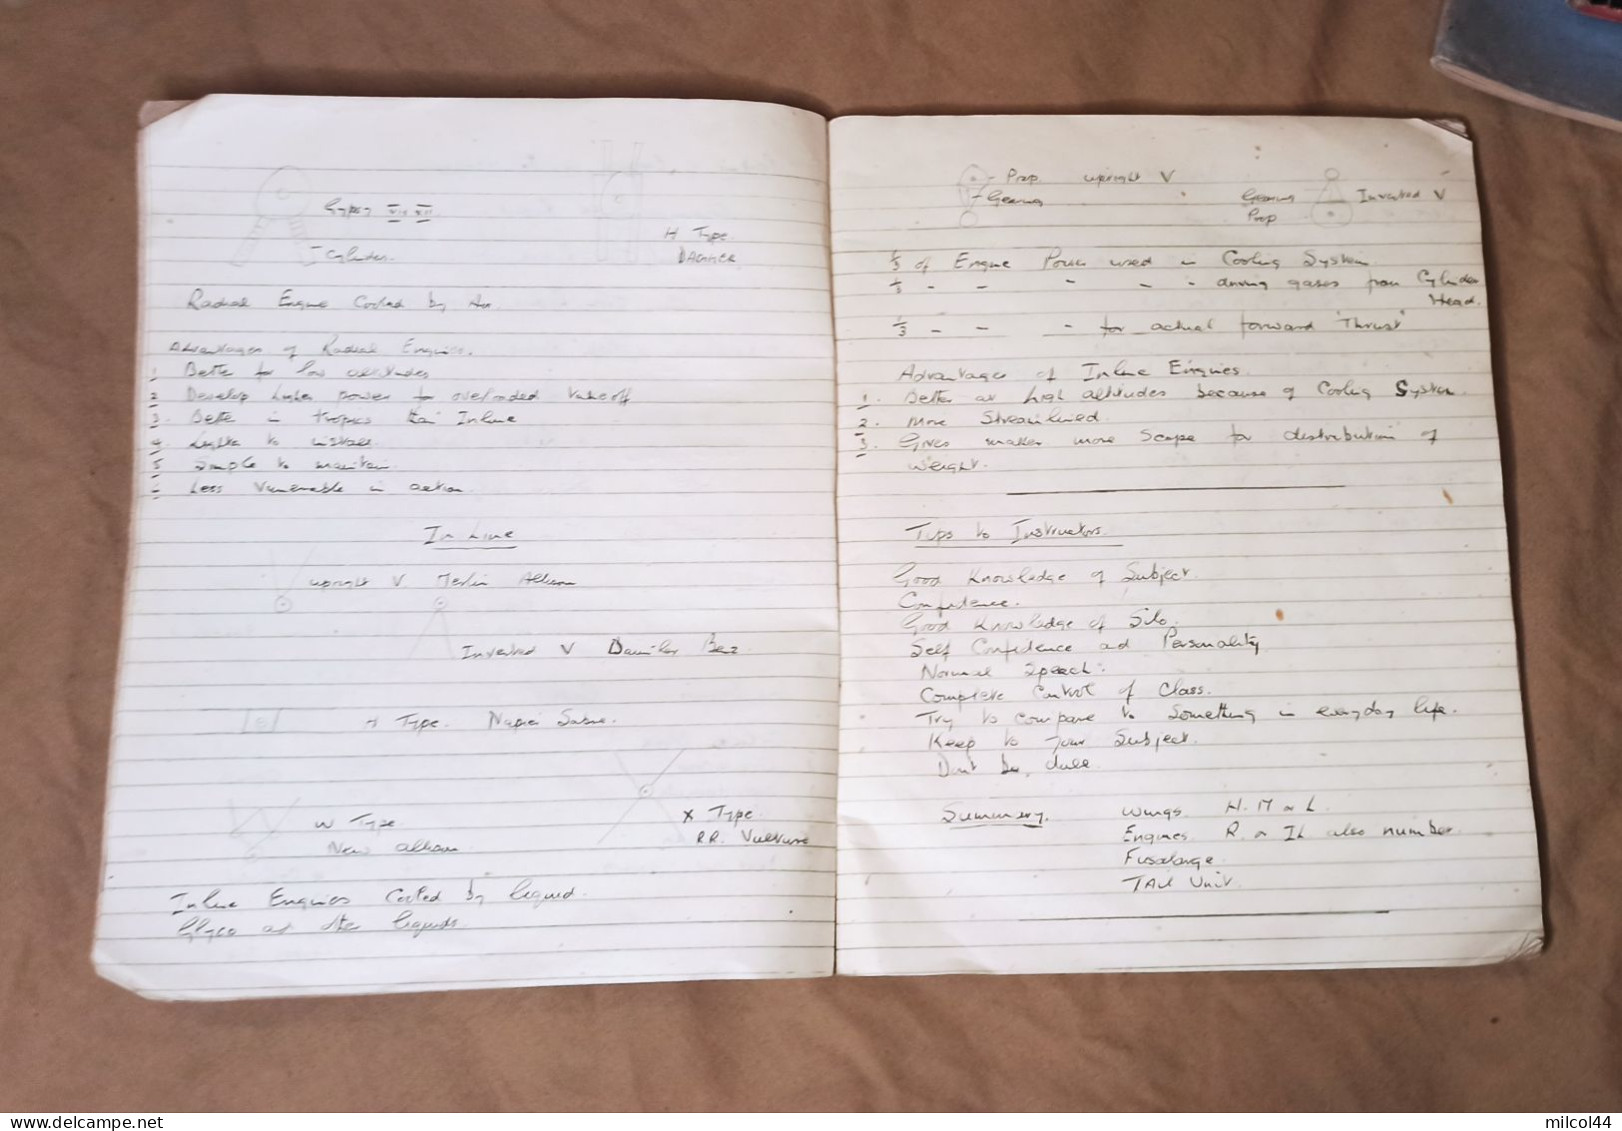 Gypsy VII XII
Cylinder.
H Type.
DAGGER
Radial Engine Cooled by Air.
Advantages of Radial Engines.
1 Better for low altitudes
2 Develop higher power for overloaded take off
3. Better in tropics than Inline
4. Lighter to install
5 Simple to maintain
Less Vulnerable in action.
In Line
upright V Merlin Allison
Inverted V Daimler Benz
H Type. Napier Sabre.
W Type.
New Allison
X Type.
R.R. Vulture
Inline Engines Cooled by liquid.
Glyco and other liquids.
Prop. upright V
Gearing
Gearing Inverted V
Prop
1/3 of Engine Power used in Cooling System
1/3 - - - - - driving gases from Cylinder
Head.
1/3 - - - for actual forward "Thrust"
Advantages of Inline Engines.
1. Better at high altitudes because of Cooling System.
2. More Streamlined.
3. Gives makers more scope for distribution of
weight.
Tips to Instructors.
Good Knowledge of Subject.
Confidence.
Good Knowledge of Silo.
Self Confidence and Personality
Normal Speech.
Complete Control of Class.
Try to compare to something in everyday life.
Keep to your Subject.
Don't be dull.
Summery. Wings. H. M or L.
Engines. R. or IL also number
Fusalarge.
TAil Unit.
delcampe.net
milcol44